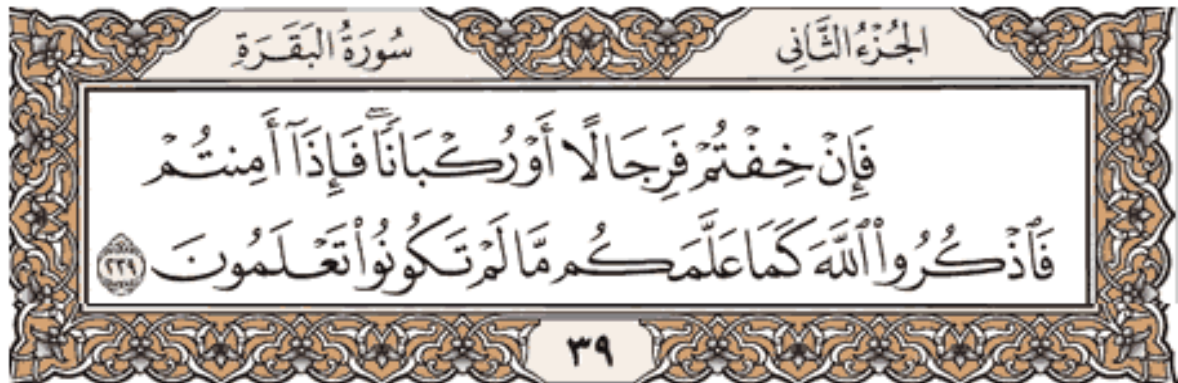 الجُزْءُ الثَّانِي
سُورَةُ البَقَرَةِ
فَإِنۡ خِفۡتُمۡ فَرِجَالًا أَوۡ رُكۡبَانٗاۖ فَإِذَآ أَمِنتُمۡ
فَٱذۡكُرُواْ ٱللَّهَ كَمَا عَلَّمَكُم مَّا لَمۡ تَكُونُواْ تَعۡلَمُونَ ٢٣٩
٣٩